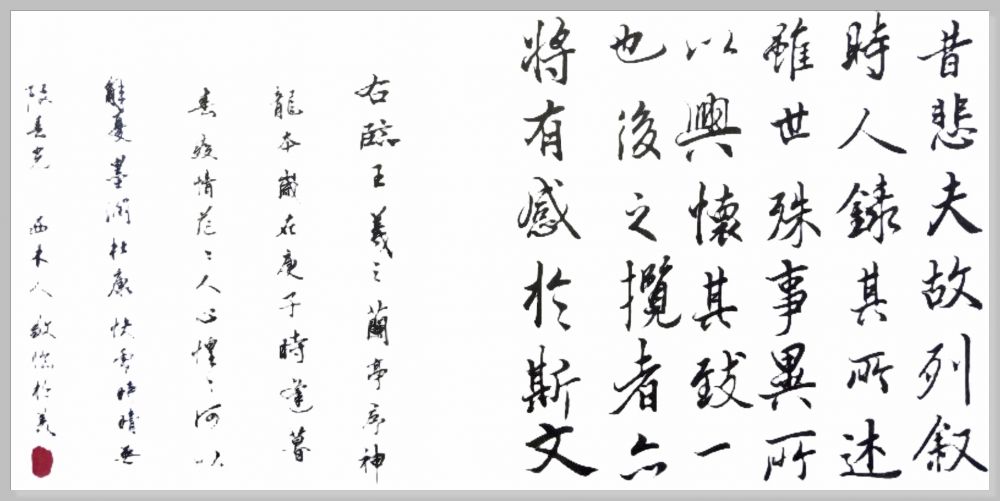 昔悲夫故列叙
時人錄其所述
雖世殊事異所
以興懷其致一
也後之攬者亦
將有感於斯文
右臨王羲之蘭亭序神
龍本歲在庚子時逢暮
春疫情茫〻人心惶〻何以
解憂墨潤杜康快雪時晴無
限春光 西木人敬臨於